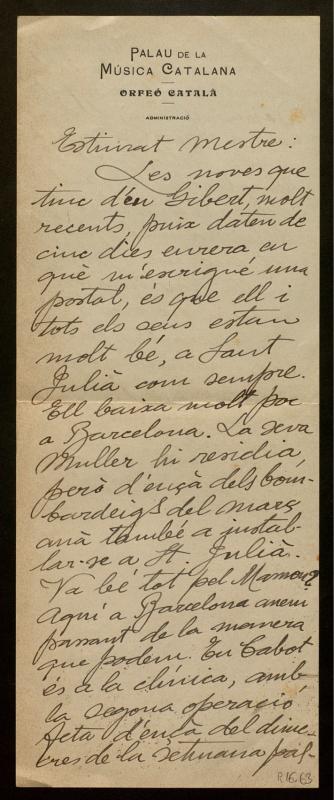 PALAU DE LA
MÚSICA CATALANA
ORFEÓ CATALÀ
ADMINISTRACIÓ
Estimat Mestre:
Les noves que
tinc d'en Gibert, molt
recents, puix daten de
cinc dies enrera en
què m'escrigué una
postal, és que ell i
tots els seus estan
molt bé, a Sant
Julià com sempre.
Ell baixa molt poc
a Barcelona. La seva
muller hi residia,
però d'ençà dels bom-
bardeigs del març
anà també a instal-
lar-se a St. Julià.
Va bé tot pel Masnou?
Aquí a Barcelona anem
passant de la manera
que podem. En Cabot
és a la clínica, amb
la segona operació
feta d'ençà del dime-
cres de la setmana pas-
R.16.63